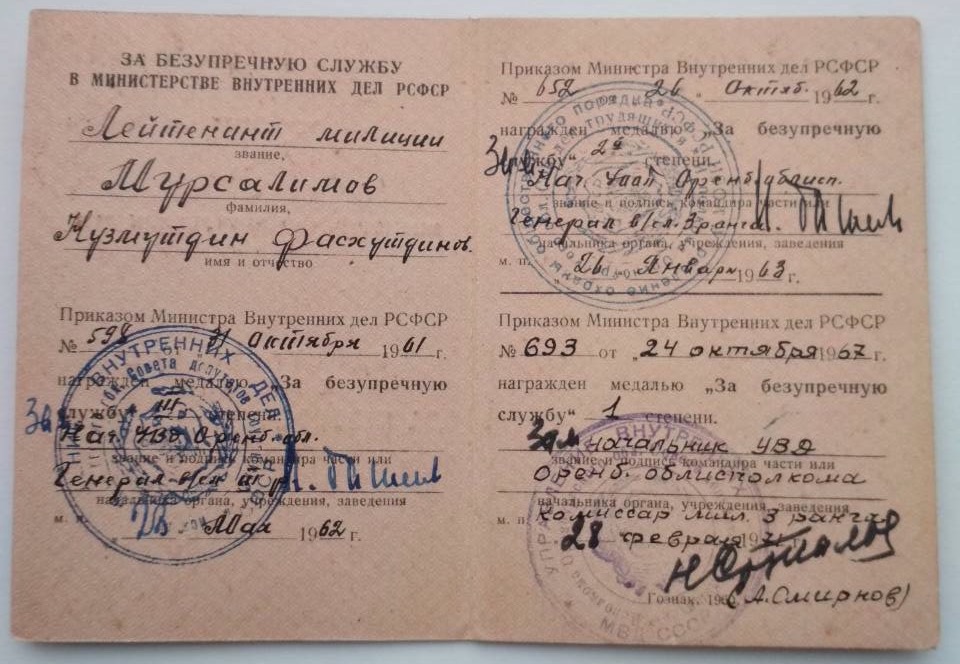 ЗА БЕЗУПРЕЧНУЮ СЛУЖБУ
В МИНИСТЕРСТВЕ ВНУТРЕННИХ ДЕЛ РСФСР
Лейтенант милиции
звание,
Мурсалимов
фамилия,
Нузмутдин Фасхутдинов.
имя и отчество
Приказом Министра Внутренних дел РСФСР
№ 598 от „31 октября 1961 г.
награжден медалью „За безупречную
службу“ III степени.
Зам
Нач. УВД Оренб. обл.
звание и подпись командира части или
Генерал в/сл. III р
начальника органа, учреждения, заведения
м. п. Мая 1962 г.
Приказом Министра Внутренних дел РСФСР
№ 652 26 Октяб. 1962 г.
награжден медалью „За безупречную
службу“ 2й степени.
Зам
Нач. Оренб облисп.
звание и подпись командира части или
Генерал в/сл. 3 ранга
начальника органа, учреждения, заведения
м. п. „26 Января 1963 г.
Приказом Министра Внутренних дел РСФСР
№ 693 от „24 октября 1967 г.
награжден медалью „За безупречную
службу“ 1 степени.
Зам начальник УВД
звание и подпись командира части или
Оренб. облисполкома
начальника органа, учреждения, заведения
м. п. комиссар мил. 3 ранга
28 февраля
Гознак. (А. Смирнов)
ВНУТРЕННИХ ДЕЛ
МВД СССР